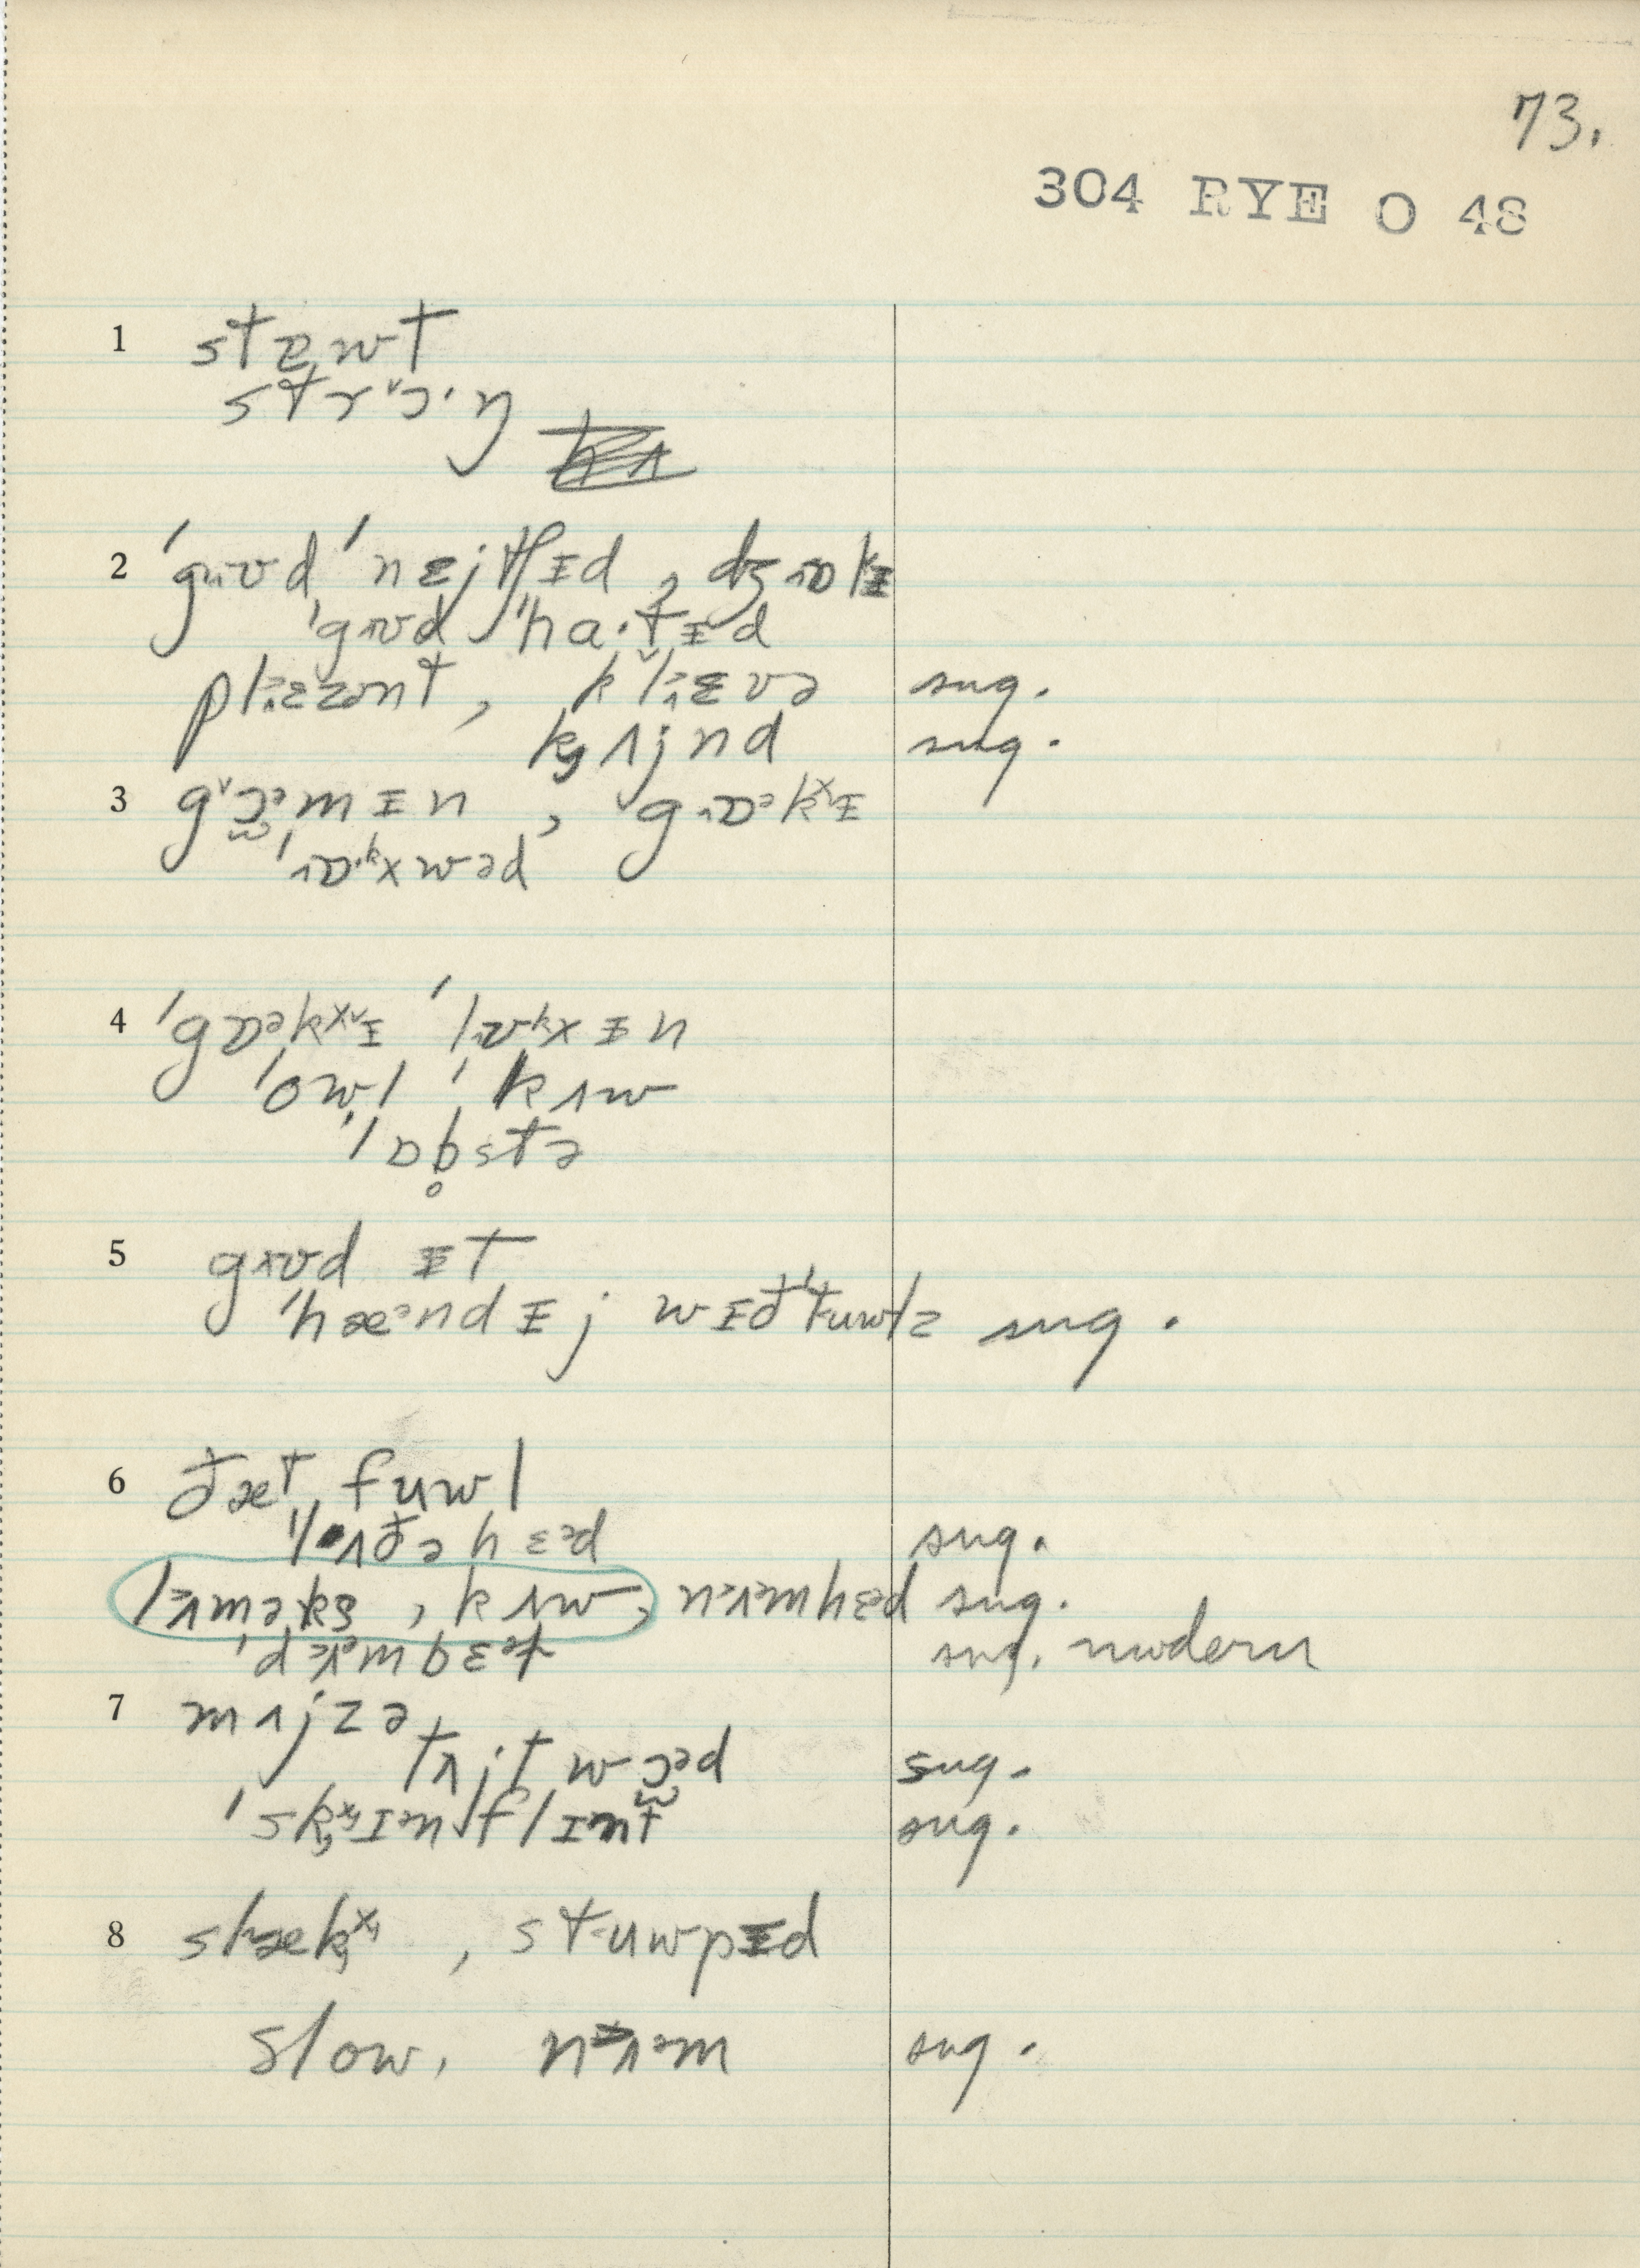 73.
304 RYE O 48
1 stɐwt
strɔ˅·ŋ
2 ˈgɪʊd ˈnɛjtʃɪd , dʒɒkɪ
ˈgɪʊd ˈha·tɪd
plɛzənt , klɛvə sug.
kʌjnd sug.
3 gɔəmɪn , gɒəkˣɪ
ˈɒkxwəd
4 ˈgɒəkˣɪ ˈlʊkxɪn
ˈowl ˈkʌw
ˈlɒb̥stə
5 gɪʊd ɪt
ˈhæəndɪj wɪðˈtuwlz sug.
6 ðæt fuwl
ˈlʌðəhɛəd sug.
lʌməks , kʌw, nʌmhɛd sug.
ˈdʌmbɛət sug. modern
7 mʌjzə
tʌjt wɔəd sug.
ˈskɪnflɪnt sug.
8 slækˣ , stuwpɪd
slow, nʌm sug.